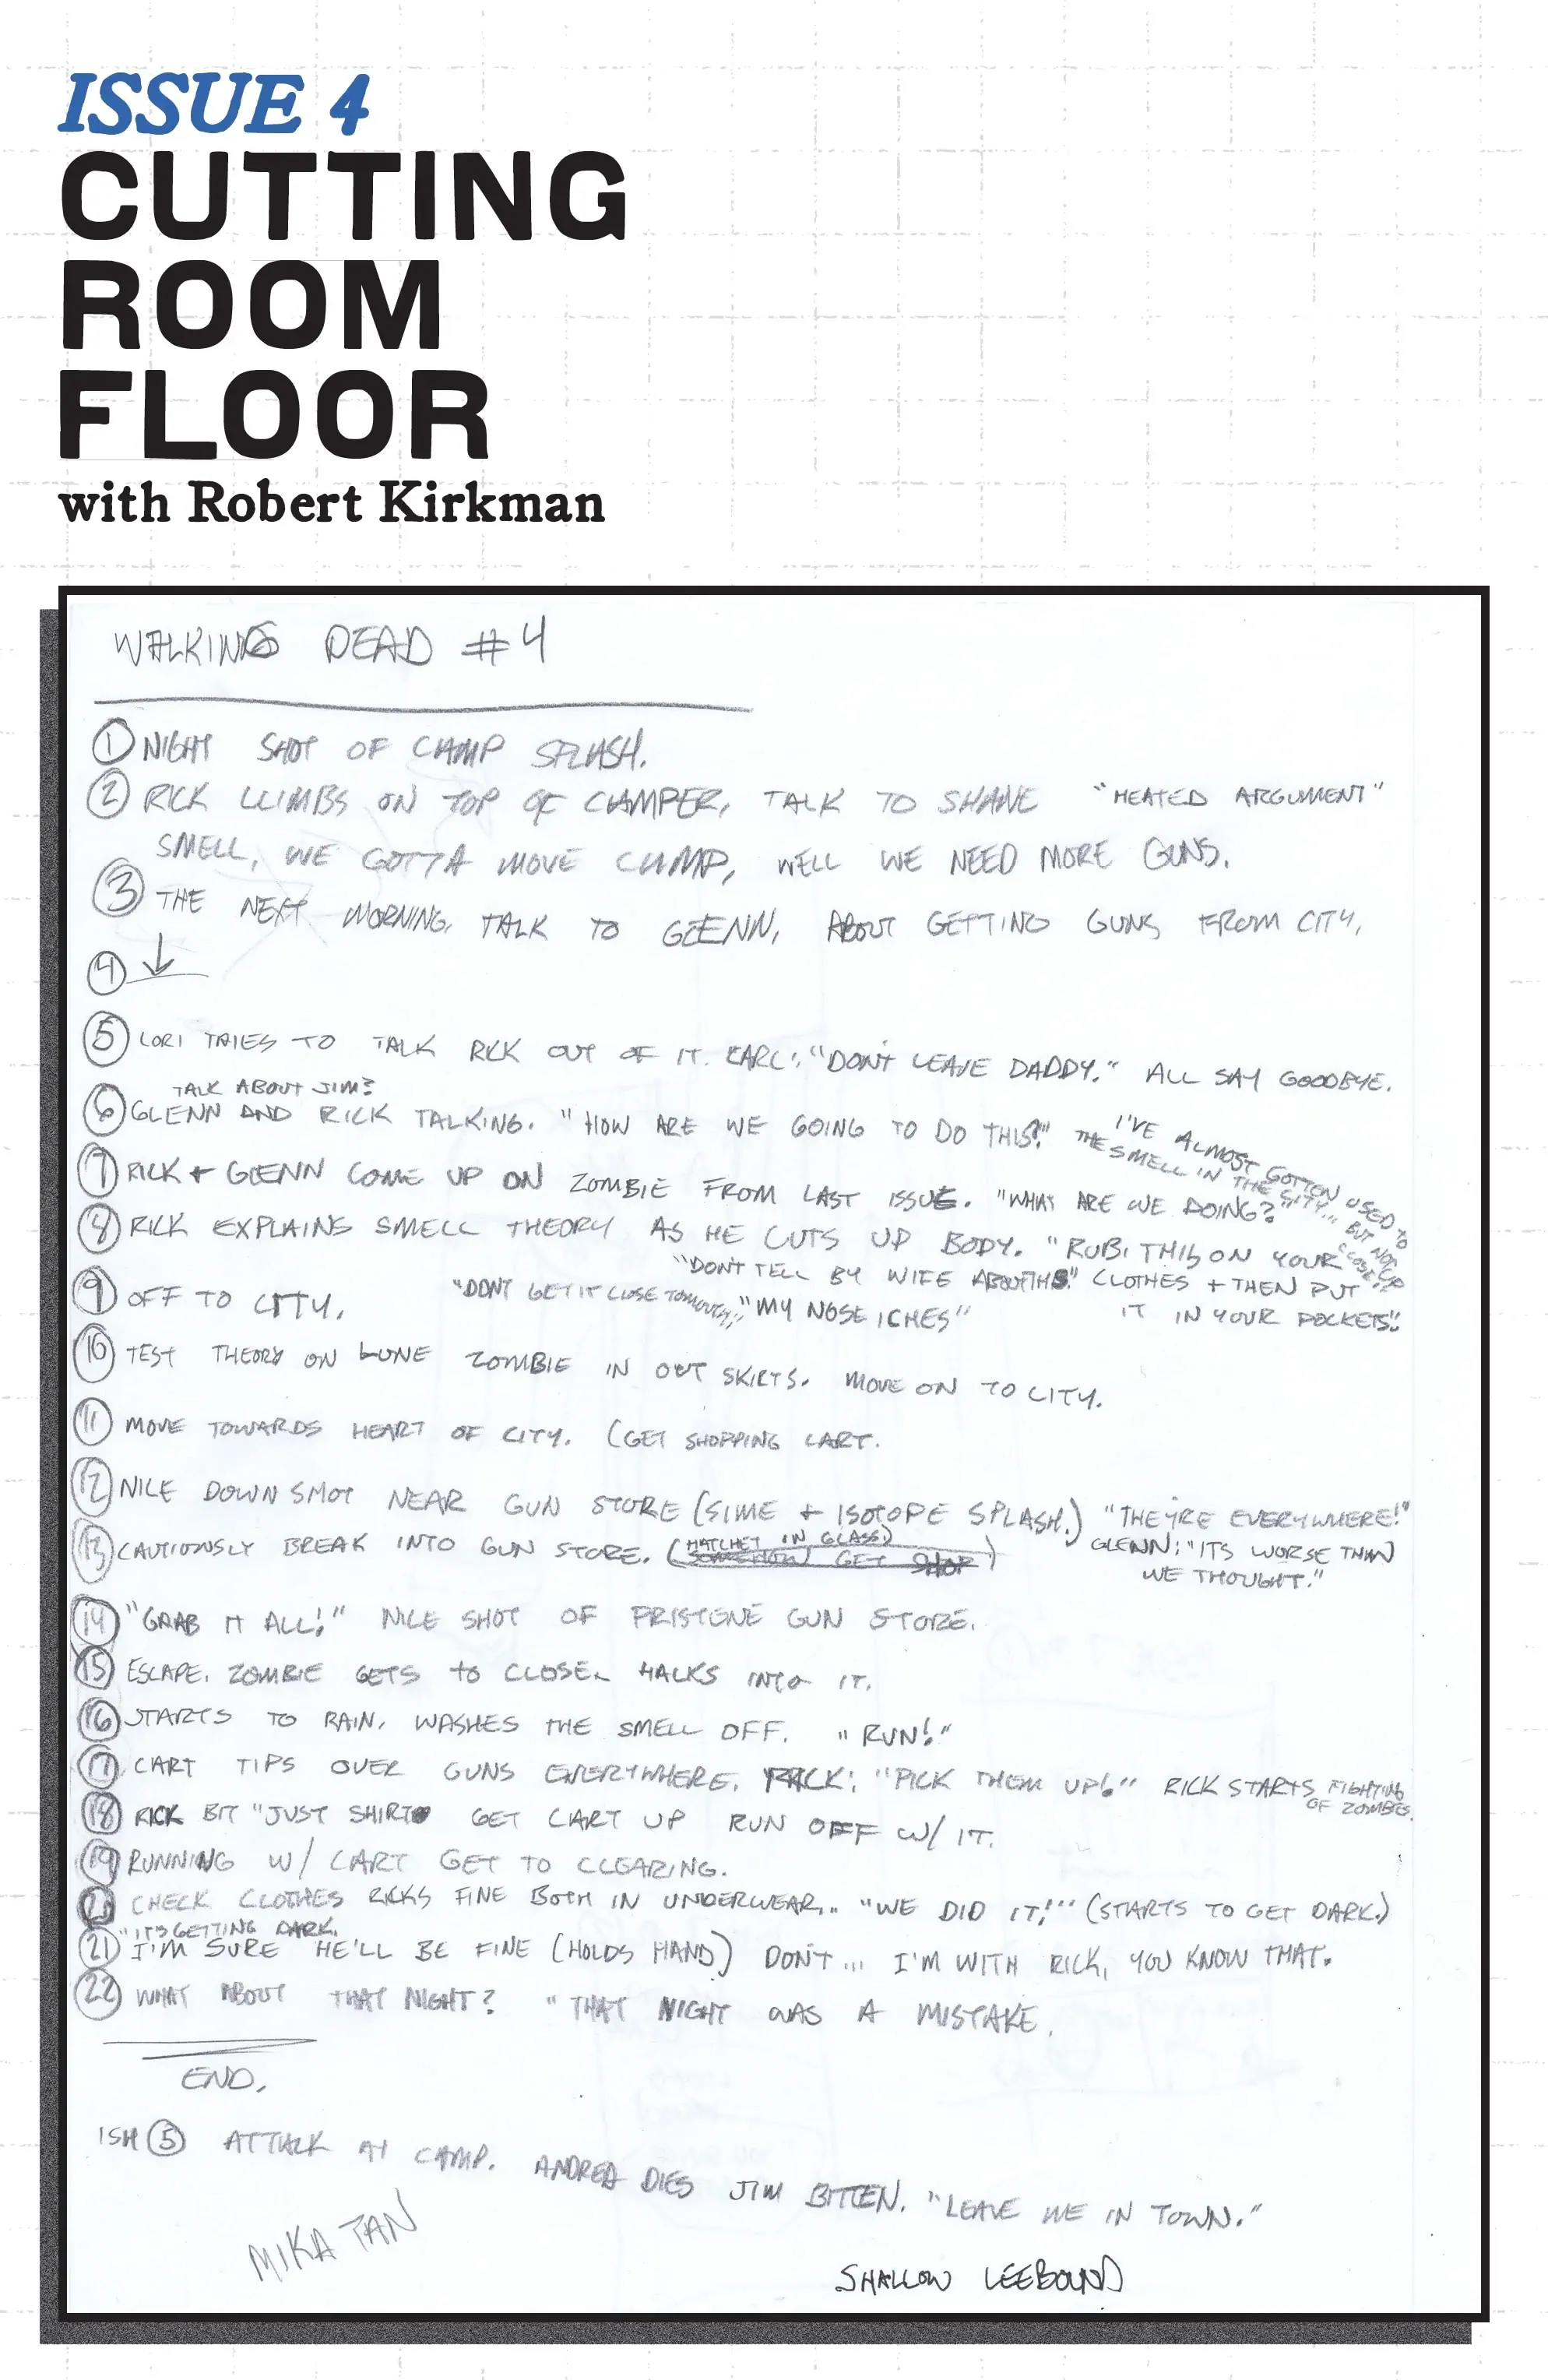 ISSUE 4
CUTTING
ROOM
FLOOR
with Robert Kirkman
WALKING DEAD #4
① NIGHT SHOT OF CAMP SPLASH.
② RICK CLIMBS ON TOP OF CAMPER, TALK TO SHANE "HEATED ARGUMENT"
SMELL, WE GOTTA MOVE CAMP, WELL WE NEED MORE GUNS.
③ THE NEXT MORNING, TALK TO GLENN, ABOUT GETTING GUNS FROM CITY,
④ ↓
⑤ LORI TRIES TO TALK RICK OUT OF IT. CARL: "DON'T LEAVE DADDY." ALL SAY GOODBYE.
TALK ABOUT JIM?
⑥ GLENN AND RICK TALKING. "HOW ARE WE GOING TO DO THIS?"
I'VE ALMOST GOTTEN USED TO
THE SMELL IN THE CITY... BUT NOT UP
CLOSE."
⑦ RICK + GLENN COME UP ON ZOMBIE FROM LAST ISSUE. "WHAT ARE WE DOING?"
⑧ RICK EXPLAINS SMELL THEORY AS HE CUTS UP BODY. "RUB THIS ON YOUR
CLOTHES + THEN PUT
IT IN YOUR POCKETS."
"DON'T TELL BY WIFE ABOUT THIS."
⑨ OFF TO CITY. "DONT GET IT CLOSE TO MOUTH," "MY NOSE ICHES"
⑩ TEST THEORY ON LONE ZOMBIE IN OUT SKIRTS. MOVE ON TO CITY.
⑪ MOVE TOWARDS HEART OF CITY. (GET SHOPPING CART.
⑫ NICE DOWN SHOT NEAR GUN STORE (SIME + ISOTOPE SPLASH.) "THEY'RE EVERYWHERE!"
GLENN: "ITS WORSE THAN
WE THOUGHT."
⑬ CAUTIOUSLY BREAK INTO GUN STORE. (HATCHET IN GLASS)
SOMEHOW GET SHOP)
⑭ "GRAB IT ALL!" NICE SHOT OF PRISTENE GUN STORE.
⑮ ESCAPE. ZOMBIE GETS TO CLOSE. HACKS INTO IT.
⑯ STARTS TO RAIN, WASHES THE SMELL OFF. "RUN!"
⑰ CART TIPS OVER GUNS EVERYWHERE. RICK: "PICK THEM UP!" RICK STARTS FIGHTING
OF ZOMBIES.
⑱ RICK BIT "JUST SHIRT GET CART UP RUN OFF W/ IT.
⑲ RUNNING W/ CART GET TO CLEARING.
⑳ CHECK CLOTHES RICKS FINE BOTH IN UNDERWEAR... "WE DID IT!" (STARTS TO GET DARK.)
"IT'S GETTING DARK.
㉑ I'M SURE HE'LL BE FINE (HOLDS HAND) DON'T... I'M WITH RICK, YOU KNOW THAT.
㉒ WHAT ABOUT THAT NIGHT? "THAT NIGHT WAS A MISTAKE.
END.
ISH ⑤ ATTACK AT CAMP. ANDREA DIES JIM BITTEN. "LEAVE ME IN TOWN."
MIKA TAN
SHALLOW LEEBOUND